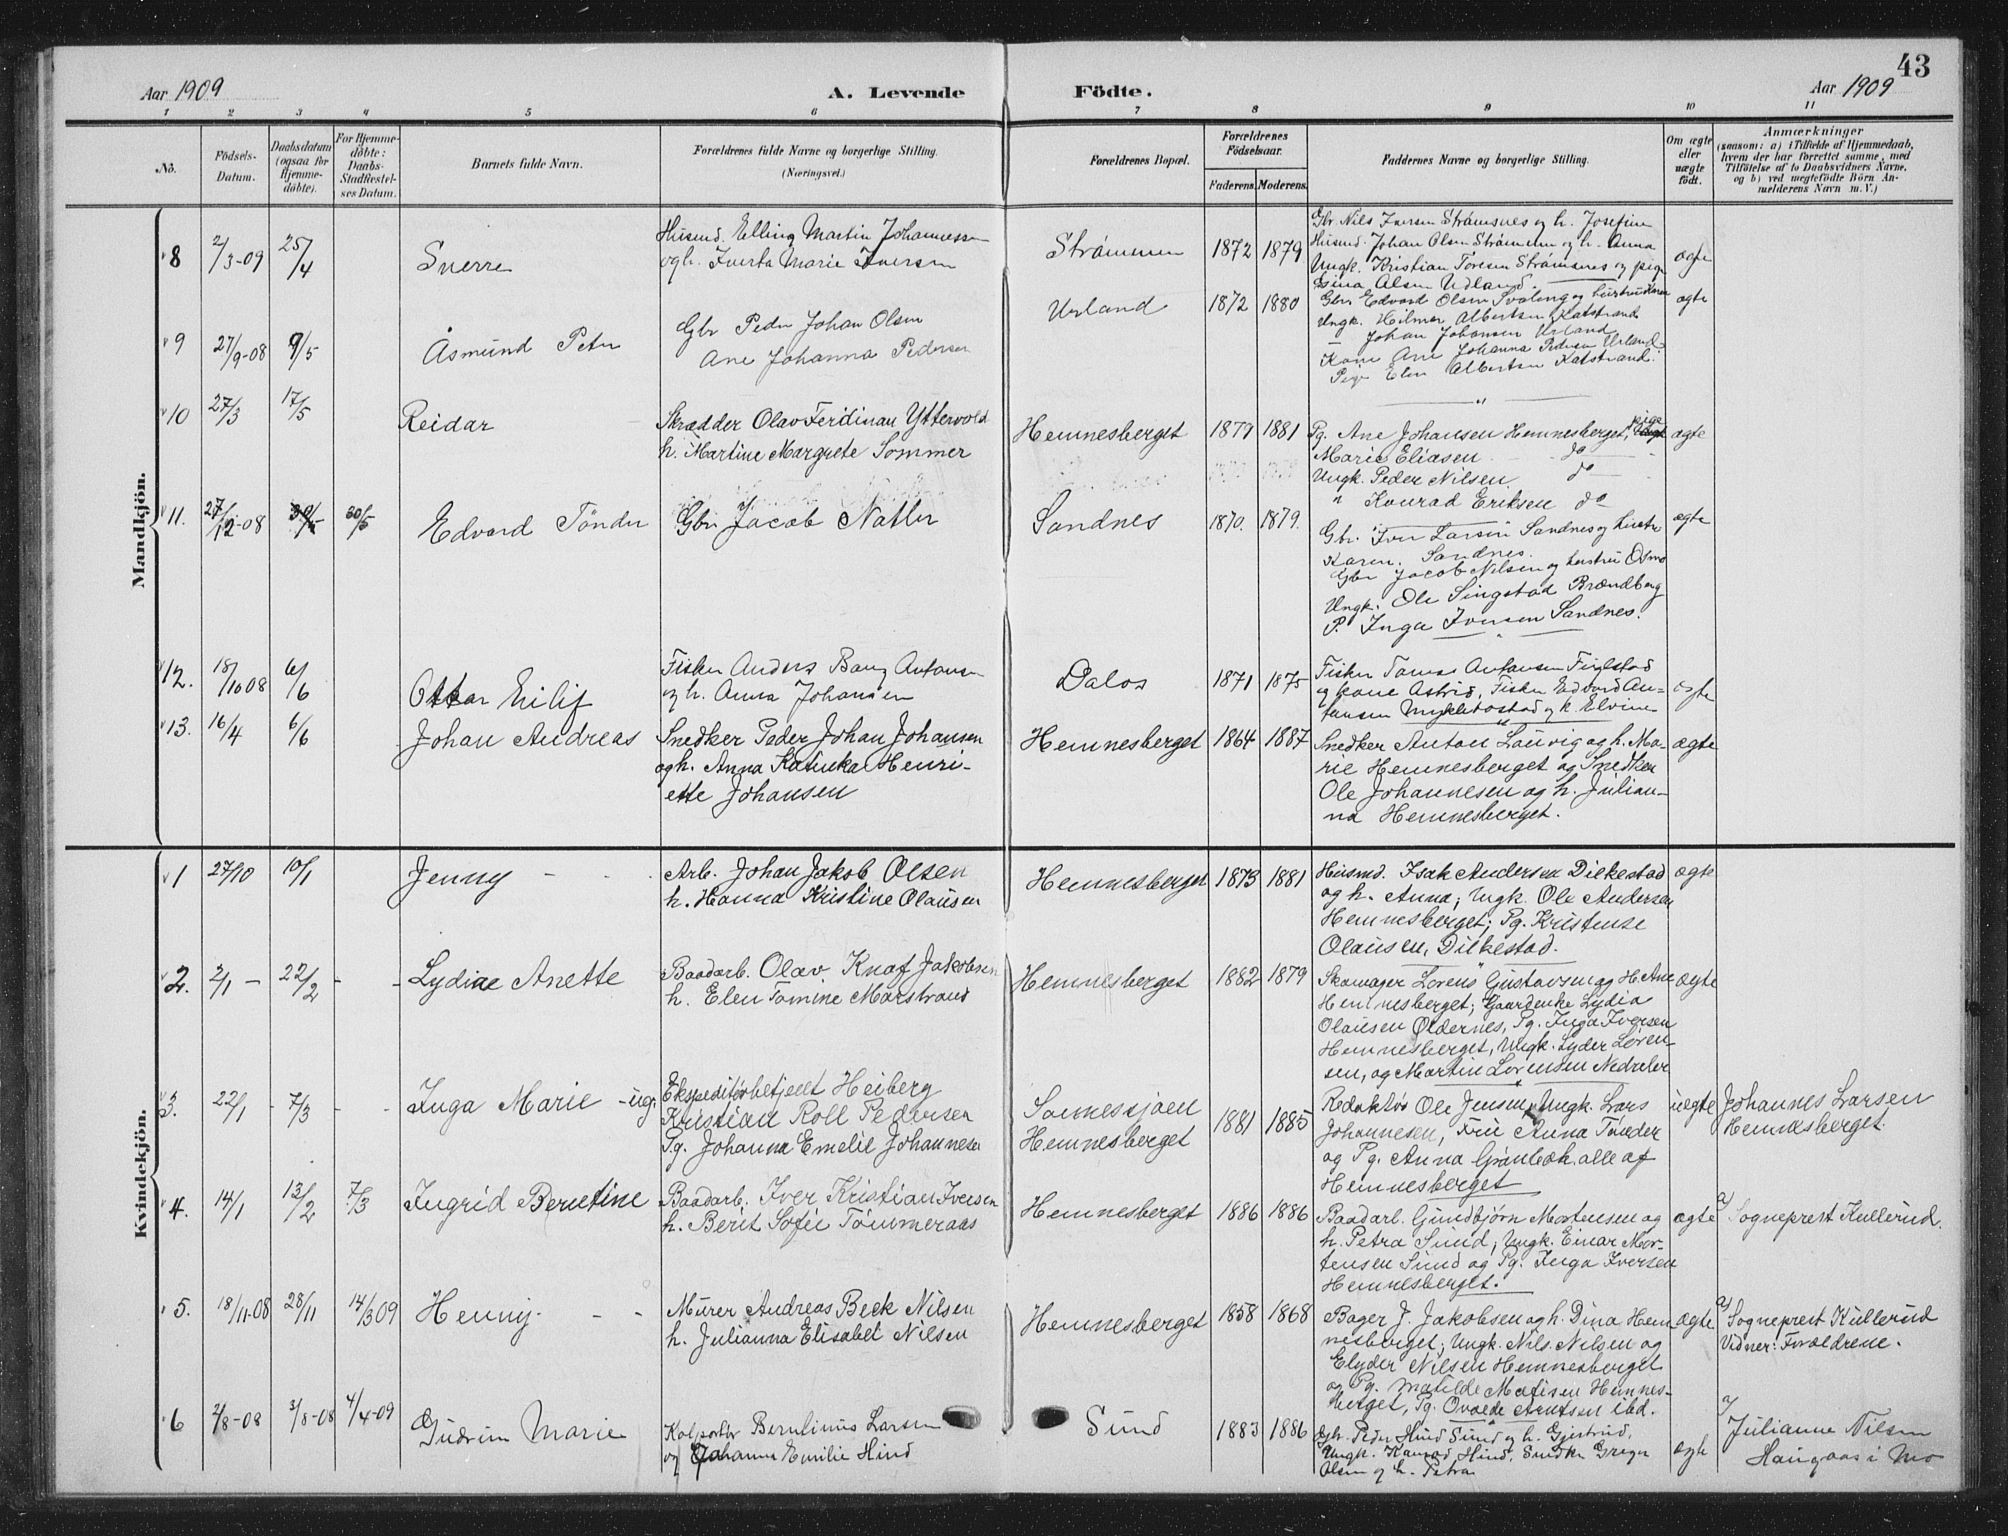 43
Aar 1909
A. Levende
Födte.
Aar 1909
1 2 3 4 5 6 7 8 9 10 11
No.
Födsels-
Datum.
Daabsdatum
(ogsaa for
Hjemme-
döbte).
For Hjemme-
döbte:
Daabs-
Stadfæstel-
ses Datum.
Barnets fulde Navn.
Forældrenes fulde Navne og borgerlige Stilling.
(Næringsvei.)
Forældrenes Bopæl.
Forældrenes
Födselsaar.
Faderens. Moderens.
Faddernes Navne og borgerlige Stilling.
Om ægte
eller
uægte
födt.
Anmærkninger
(saasom: a) i Tilfælde af Hjemmedaab,
hvem der har forrettet samme, med
Tilföielse af to Daabsvidners Navne,
og b) ved uægtefödte Börn An-
melderens Navn m. V.)
Mandkjön.
8 2/3-09 25/4 Sverre
Husmd. Elling Martin Johannessen
ogh. Iverta Marie Iversen
Strømmen 1872 1879
Gbr Nils Iversen Strømsnes og h. Josefine
Husmd. Johan Olsen Strømmen og h. Anna
Ungk. Kristian Toresen Strømsnes og pige
Olsen Udland.
ægte
9 27/9-08 9/5 Åsmund Peter
Gbr Peder Johan Olsen
Ane Johanna Pedersen
Urland 1872 1880
Gbr Edvard Olsen og hustru
Ungk. Hilmer Albertsen Katstrand
Johan Johansen Urland
Kone Ane Johanna Pedersen Urland.
Pige Elen Albertsen Katstrand.
ægte
10 27/3 17/5 Reidar
Skrædder Olav Ferdinan Yttervold
h. Martine Margrete Sommer
Hemnesberget 1879 1881
Pg. Ane Johansen Hemnesberget, pige
Marie Eliasen do
Ungk. Peder Nilsen do
" Konrad Eriksen do
ægte
11. 27/12-08 30/5 Edvard Tönder
Gbr Jacob Natler
Sandnes 1870. 1879.
Gbr. Iver Larsen Sandnes og hustru
Karen. Sandnes.
Gbr Jacob Nilsen og hustru
Ungk. Ole Singstad Brændberg
P. Inga Iversen Sandnes.
ægte
12. 18/10 08 6/6 Ottar Eilif
Fisker Anders Bang Antonsen
og h. Anna Johansen
Dalos 1871 1875
Fisker Tomas Antonsen
og kone Astrid, Fisker Edvard An-
tonsen og k. Elvine
ægte
13. 16/4 6/6 Johan Andreas
Snedker Peder Johan Johansen
ogh. Anna Katinka Henri-
ette Johansen
Hemnesberget 1864 1887
Snedker Anton Lauvig og h. Ma-
rie Hemnesberget og Snedker
Ole Johannesen og h. Julian-
na Hemnesberget.
ægte
Kvindekjön.
1 27/10 10/1 Jenny
Arb. Johan Jakob Olsen
h. Hanna Kristine Olausen
Hemnesberget 1873 1881
Husmd. Isak Andersen Dilkestad
og h. Anna; Ungk. Ole Andersen
Hemnesberget; Pg. Kristense
Olausen, Dilkestad.
ægte
2. 2/1 22/2 Lydia Anette
Baadarb. Olav Knaf Jakobsen
h. Elen Tomine Marstrand
Hemnesberget 1882 1879
Skomager Lorens Gustavsen og H. Ane
Hemnesberget; Gaardenke Lydia
Olausen Oldernes, Pg. Inga Iversen
Hemnesberget, Ungk. Lyder Loren-
sen, og Martin Lorensen
ægte
3. 22/1 7/3 Inga Marie uæg.
Ekspeditørbetjent Heiberg
Kristian Roll Pedersen
Pg. Johanna Emelie Johannesen
Sannessjøen
Hemnesberget
1881 1885
Redaktør Ole Jensen, Ungk. Lars
Johannesen, Frue Anna Tönder
og Pg. Anna Grönbeck, alle af
Hemnesberget
uægte
Johannes Larsen
Hemnesberget.
4. 14/1 13/2 7/3 Ingrid Berntine
Baadarb. Iver Kristian Iversen
h. Berit Sofie Tömmeraas
Hemnesberget 1886 1886
Baadarb. Gundbjørn Mortensen og
h. Petra Sund; Ungk. Einar Mor-
tensen Sund og Pg. Inga Iversen
Hemnesberget.
ægte
a/ Sogneprest Kullerud.
5. 18/11-08 28/11 14/3 09 Henny
Murer Andreas Beck Nilsen
h. Julianna Elisabet Nilsen
Hemnesberget 1858 1868
Bager J. Jakobsen og h. Dina Hem
nesberget; Ungk. Nils Nilsen og
Elyder Nilsen Hemnesberget
og Pg. Matilde Matisen Hemnes-
berget, Pg. Ovaede Arntsen ibd.
ægte
a/ Sogneprest Kullerud
Vidner: Forældrene.
6 2/8-08 3/8-08 4/4-09 Gudrun Marie
Kolportør Berntinus Larsen
og Johanna Emilie Hind
Sund 1883 1886
Gbr. Peder Hind Sund og h. Gjertrud,
Ungk. Konrad Hind, Snedker Greger
Olsen og h. Petra
ægte
a/ Julianne Nilsen
Haugaas i Mo